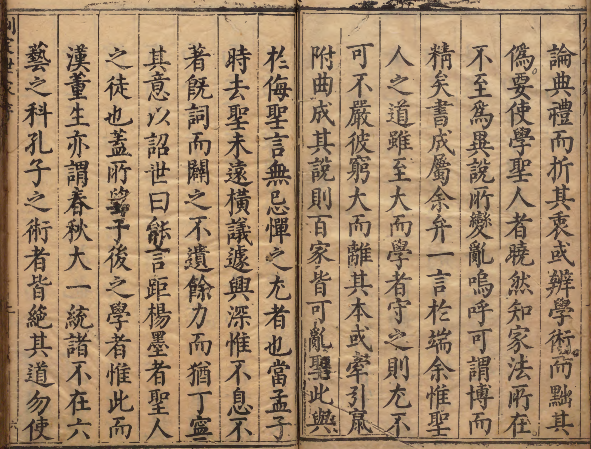 論典禮而折其衷或辨學術而黜其
僞要使學聖人者曉然知家法所在
不至爲異說所變亂嗚呼可謂博而
精矣書成屬余弁一言扵端余惟聖
人之道雖至大而學者守之則尤不
可不嚴彼窮大而離其本或牽引
附曲成其說則百家皆可亂聖此與
扵侮聖言無忌憚之尤者也當孟子
時去聖未遠橫議遽興深惟不息不
著旣詞而闢之不遺餘力而猶丁寧
其意以詔世曰能言距楊墨者聖人
之徒也蓋所望于後之學者惟此而
漢董生亦謂春秋大一統諸不在六
藝之科孔子之術者皆絕其道勿使